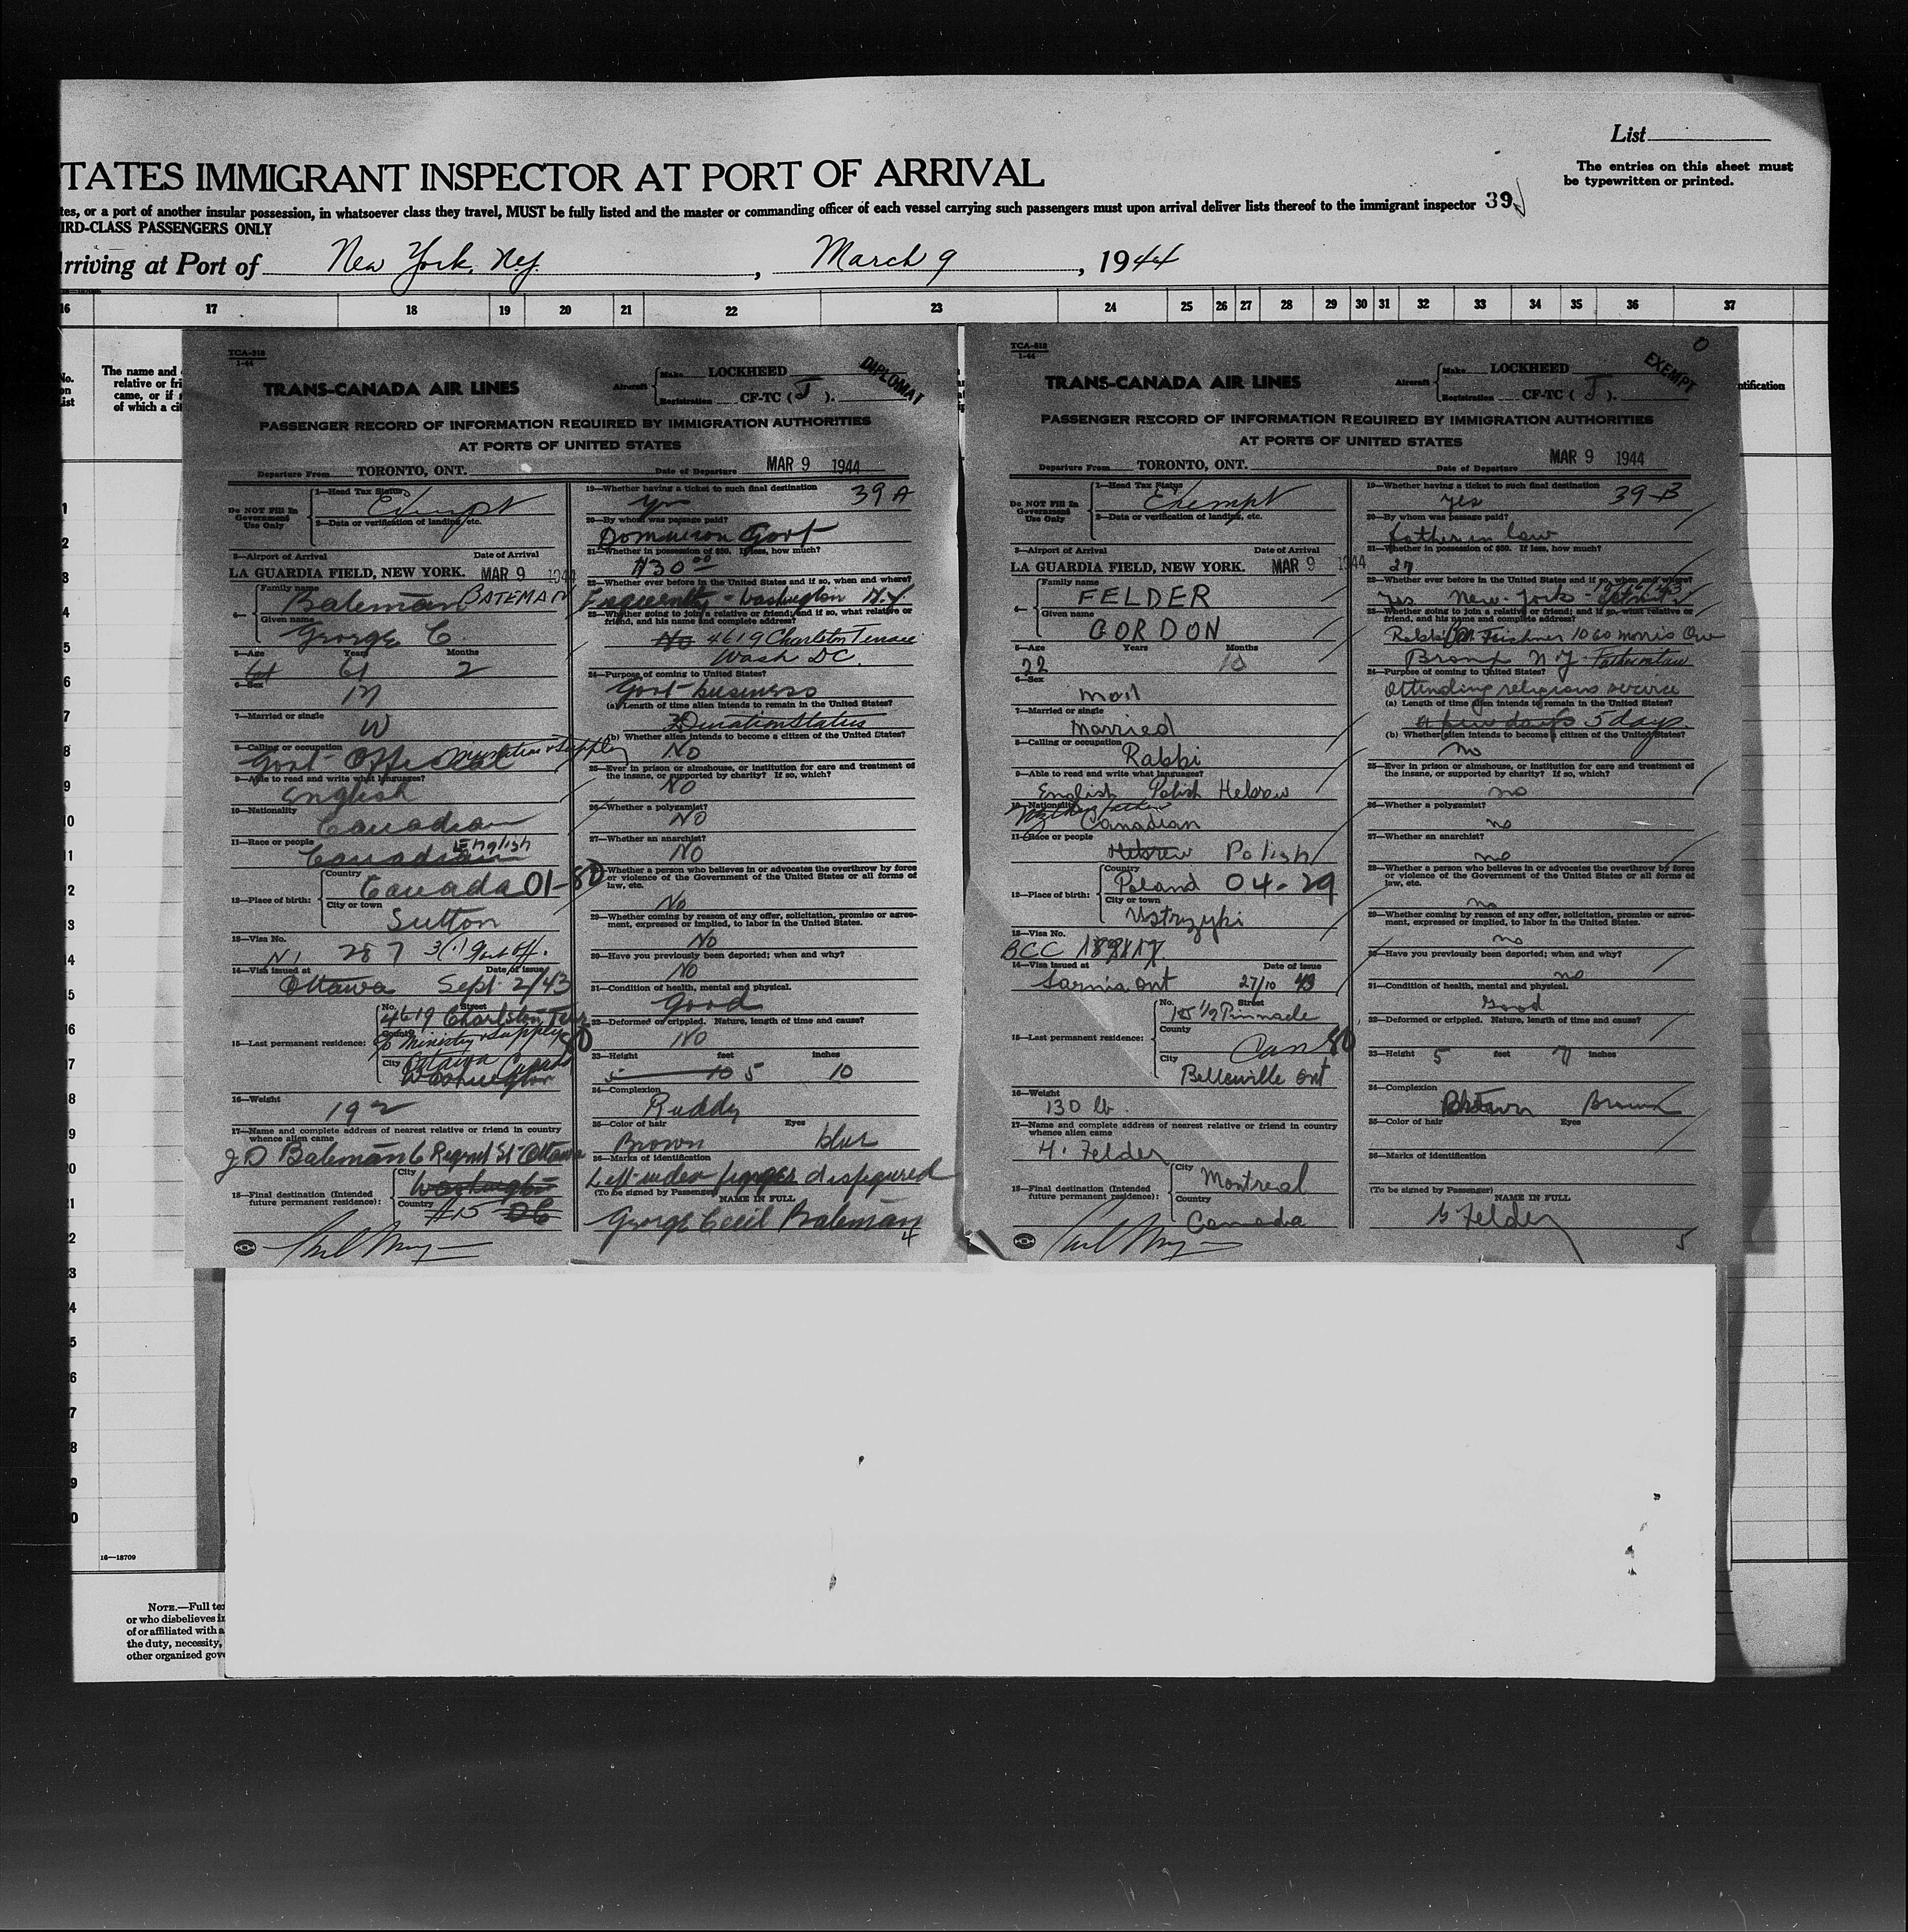 List
The entries on this sheet must
be typewritten or printed.
TATES IMMIGRANT INSPECTOR AT PORT OF ARRIVAL
tes, or a port of another insular possession, in whatsoever class they travel, MUST be fully listed and the master or commanding officer of each vessel carrying such passengers must upon arrival deliver lists thereof to the immigrant inspector 39
IRD-CLASS PASSENGERS ONLY
rriving at Port of New York, N.Y., March 9, 1944
16 17 18 19 20 21 22 23 24 25 26 27 28 29 30 31 32 33 34 35 36 37
No.
on
ist
The name and
relative or fri
came, or if
of which a cit
ntification
TCA-818
1-44
TRANS-CANADA AIR LINES
Aircraft
Make LOCKHEED
Registration CF-TC ( J ).
DIPLOMAT
PASSENGER RECORD OF INFORMATION REQUIRED BY IMMIGRATION AUTHORITIES
AT PORTS OF UNITED STATES
Departure From TORONTO, ONT. Date of Departure MAR 9 1944
Do NOT Fill In
Government
Use Only
1—Head Tax Status
Exempt
2—Data or verification of landing, etc.
3—Airport of Arrival Date of Arrival
LA GUARDIA FIELD, NEW YORK. MAR 9 1944
4—
Family name
Bateman BATEMAN
Given name
George C.
5—Age Years Months
61 61 2
6—Sex
M
7—Married or single
W
8—Calling or occupation
Govt Official Munitions & Supply
9—Able to read and write what languages?
English
10—Nationality
Canadian
11—Race or people
Canadian English
12—Place of birth:
Country
Canada 01-80
City or town
Sutton
13—Visa No.
287 3(1) Govt Off.
14—Visa issued at Date of issue
Ottawa Sept. 2/43
15—Last permanent residence:
No. Street
4619 Charlston Terr
County
% Ministry & Supply 80
City
Ottawa Canada
Washington
16—Weight
192
17—Name and complete address of nearest relative or friend in country
whence alien came
J D Bateman 6 Regent St Ottawa
18—Final destination (Intended
future permanent residence):
City
Washington
Country
#15 DC
19—Whether having a ticket to such final destination 39 A
Yes
20—By whom was passage paid?
Dominion Govt
21—Whether in possession of $50. If less, how much?
$30.00
22—Whether ever before in the United States and if so, when and where?
Frequently - Washington N.Y
23—Whether going to join a relative or friend; and if so, what relative or
friend, and his name and complete address?
No 4619 Charlston Terrace
Wash DC.
24—Purpose of coming to United States?
Govt business
(a) Length of time alien intends to remain in the United States?
Duration Status
(b) Whether alien intends to become a citizen of the United States?
No
25—Ever in prison or almshouse, or institution for care and treatment of
the insane, or supported by charity? If so, which?
No
26—Whether a polygamist?
No
27—Whether an anarchist?
No
28—Whether a person who believes in or advocates the overthrow by force
or violence of the Government of the United States or all forms of
law, etc.
No
29—Whether coming by reason of any offer, solicitation, promise or agree-
ment, expressed or implied, to labor in the United States.
No
30—Have you previously been deported; when and why?
No
31—Condition of health, mental and physical.
Good
32—Deformed or crippled. Nature, length of time and cause?
No
33—Height feet inches
5 10 5 10
34—Complexion
Ruddy
35—Color of hair Eyes
Brown blue
36—Marks of identification
Left index finger disfigured
(To be signed by Passenger) NAME IN FULL
George Cecil Bateman
4
TCA-818
1-44
TRANS-CANADA AIR LINES
Aircraft
Make LOCKHEED
Registration CF-TC ( J ).
EXEMPT
0
PASSENGER RECORD OF INFORMATION REQUIRED BY IMMIGRATION AUTHORITIES
AT PORTS OF UNITED STATES
Departure From TORONTO, ONT. Date of Departure MAR 9 1944
Do NOT Fill In
Government
Use Only
1—Head Tax Status
Exempt
2—Data or verification of landing, etc.
3—Airport of Arrival Date of Arrival
LA GUARDIA FIELD, NEW YORK. MAR 9 1944
4—
Family name
FELDER
Given name
GORDON
5—Age Years Months
22 10
6—Sex
mail
7—Married or single
Married
8—Calling or occupation
Rabbi
9—Able to read and write what languages?
English Polish Hebrew
10—Nationality
father
Canadian
11—Race or people
Hebrew Polish
12—Place of birth:
Country
Poland 04-29
City or town
Ustrzyki
13—Visa No.
BCC
14—Visa issued at Date of issue
Sarnia ont 27/10 43
15—Last permanent residence:
No. Street
1/2 Pinnacle
County
Can 80
City
Belleville ont
16—Weight
130 lb.
17—Name and complete address of nearest relative or friend in country
whence alien came
H. Felder
18—Final destination (Intended
future permanent residence):
City
Montreal
Country
Canada
19—Whether having a ticket to such final destination 39-B
yes
20—By whom was passage paid?
father in law
21—Whether in possession of $50. If less, how much?
27
22—Whether ever before in the United States and if so, when and where?
Yes New-York -
23—Whether going to join a relative or friend; and if so, what relative or
friend, and his name and complete address?
Rabbi 1060 Morris Ave
Bronx N Y Father in law
24—Purpose of coming to United States?
Attending religious service
(a) Length of time alien intends to remain in the United States?
a few days 5 days
(b) Whether alien intends to become a citizen of the United States?
no
25—Ever in prison or almshouse, or institution for care and treatment of
the insane, or supported by charity? If so, which?
no
26—Whether a polygamist?
no
27—Whether an anarchist?
no
28—Whether a person who believes in or advocates the overthrow by force
or violence of the Government of the United States or all forms of
law, etc.
no
29—Whether coming by reason of any offer, solicitation, promise or agree-
ment, expressed or implied, to labor in the United States.
no
30—Have you previously been deported; when and why?
no
31—Condition of health, mental and physical.
Good
32—Deformed or crippled. Nature, length of time and cause?
33—Height 5 feet 7 inches
34—Complexion
Brown Brown
35—Color of hair Eyes
36—Marks of identification
(To be signed by Passenger) NAME IN FULL
G Felder
5
1
2
3
4
5
6
7
8
9
10
11
12
13
14
15
16
17
18
19
20
21
2
3
4
5
6
7
8
9
0
16—18709
NOTE.—Full te
or who disbelieves in
of or affiliated with a
the duty, necessity,
other organized gove